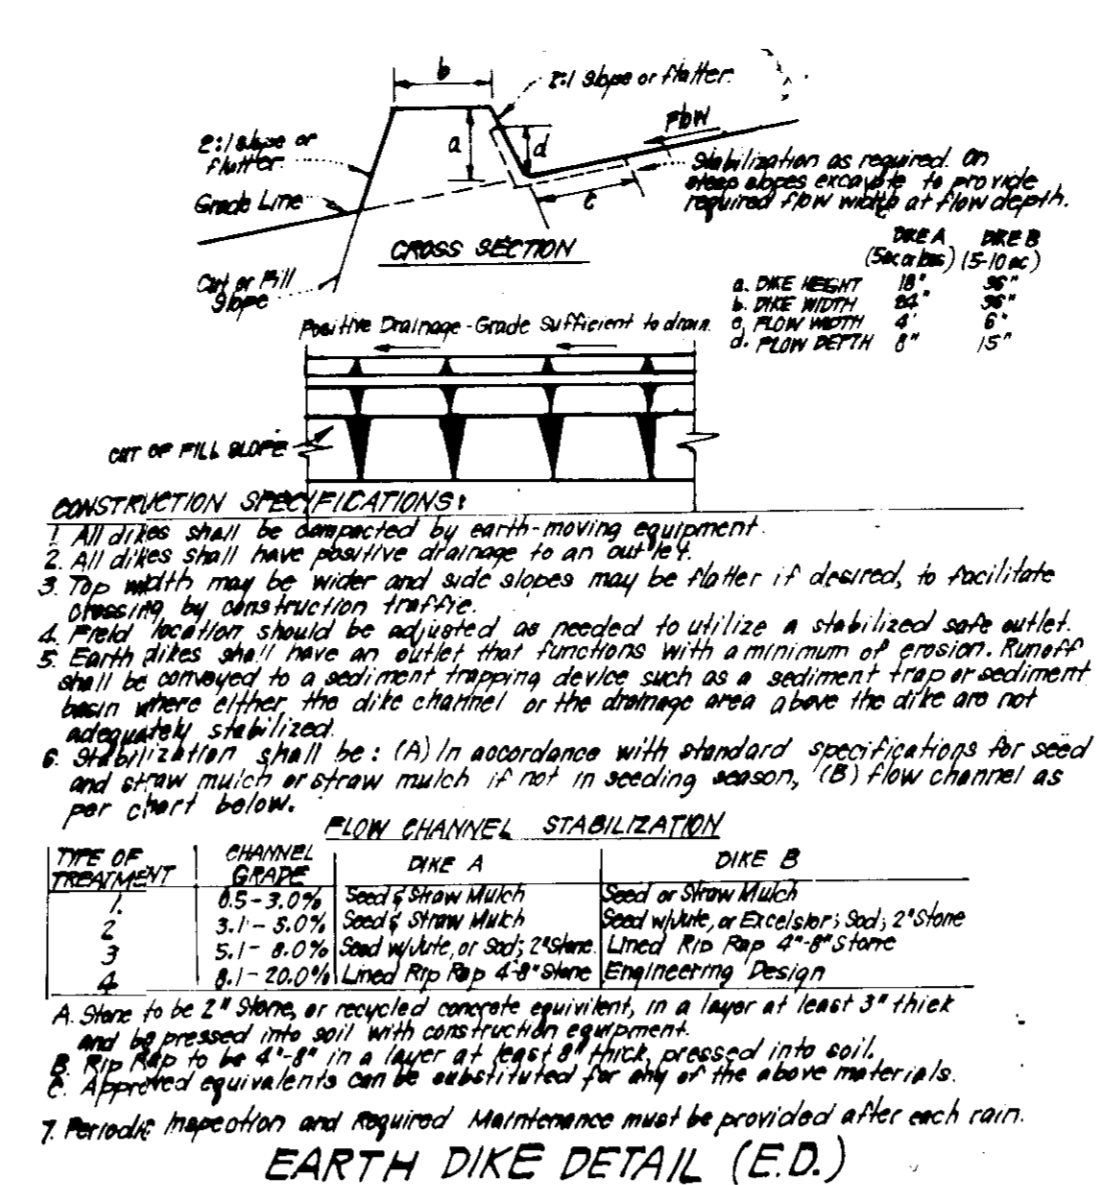 b
2:1 Slope or flatter.
Flow
2:1 slope or
flatter.
a
d
Stabilization as required. On
steep slopes excavate to provide
required flow width at flow depth.
Grade Line
c
CROSS SECTION
Cut or Fill
Slope
DIKE A DIKE B
(5ac or less) (5-10 ac)
a. DIKE HEIGHT 18" 36"
b. DIKE WIDTH 24" 36"
c. FLOW WIDTH 4' 6'
d. FLOW DEPTH 8" 15"
Positive Drainage - Grade Sufficient to drain.
CUT OF FILL SLOPE
CONSTRUCTION SPECIFICATIONS:
1. All dikes shall be compacted by earth-moving equipment.
2. All dikes shall have positive drainage to an outlet.
3. Top width may be wider and side slopes may be flatter if desired, to facilitate
crossing by construction traffic.
4. Field location should be adjusted as needed to utilize a stabilized safe outlet.
5. Earth dikes shall have an outlet that functions with a minimum of erosion. Runoff
shall be conveyed to a sediment trapping device such as a sediment trap or sediment
basin where either the dike channel or the drainage area above the dike are not
adequately stabilized.
6. Stabilization shall be: (A) In accordance with standard specifications for seed
and straw mulch or straw mulch if not in seeding season, (B) flow channel as
per chart below.
FLOW CHANNEL STABILIZATION
TYPE OF TREATMENT CHANNEL GRADE DIKE A DIKE B
1. 0.5-3.0% Seed & Straw Mulch Seed or Straw Mulch
2 3.1-5.0% Seed & Straw Mulch Seed w/Jute, or Excelsior; Sod; 2" Stone
3 5.1-8.0% Seed w/Jute, or Sod; 2" Stone Lined Rip Rap 4"-8" Stone
4 8.1-20.0% Lined Rip Rap 4-8" Stone Engineering Design
A. Stone to be 2" Stone, or recycled concrete equivilent, in a layer at least 3" thick
and be pressed into soil with construction equipment.
B. Rip Rap to be 4"-8" in a layer at least 8" thick, pressed into soil.
C. Approved equivalents can be substituted for any of the above materials.
7. Periodic Inspection and Required Maintenance must be provided after each rain.
EARTH DIKE DETAIL (E.D.)